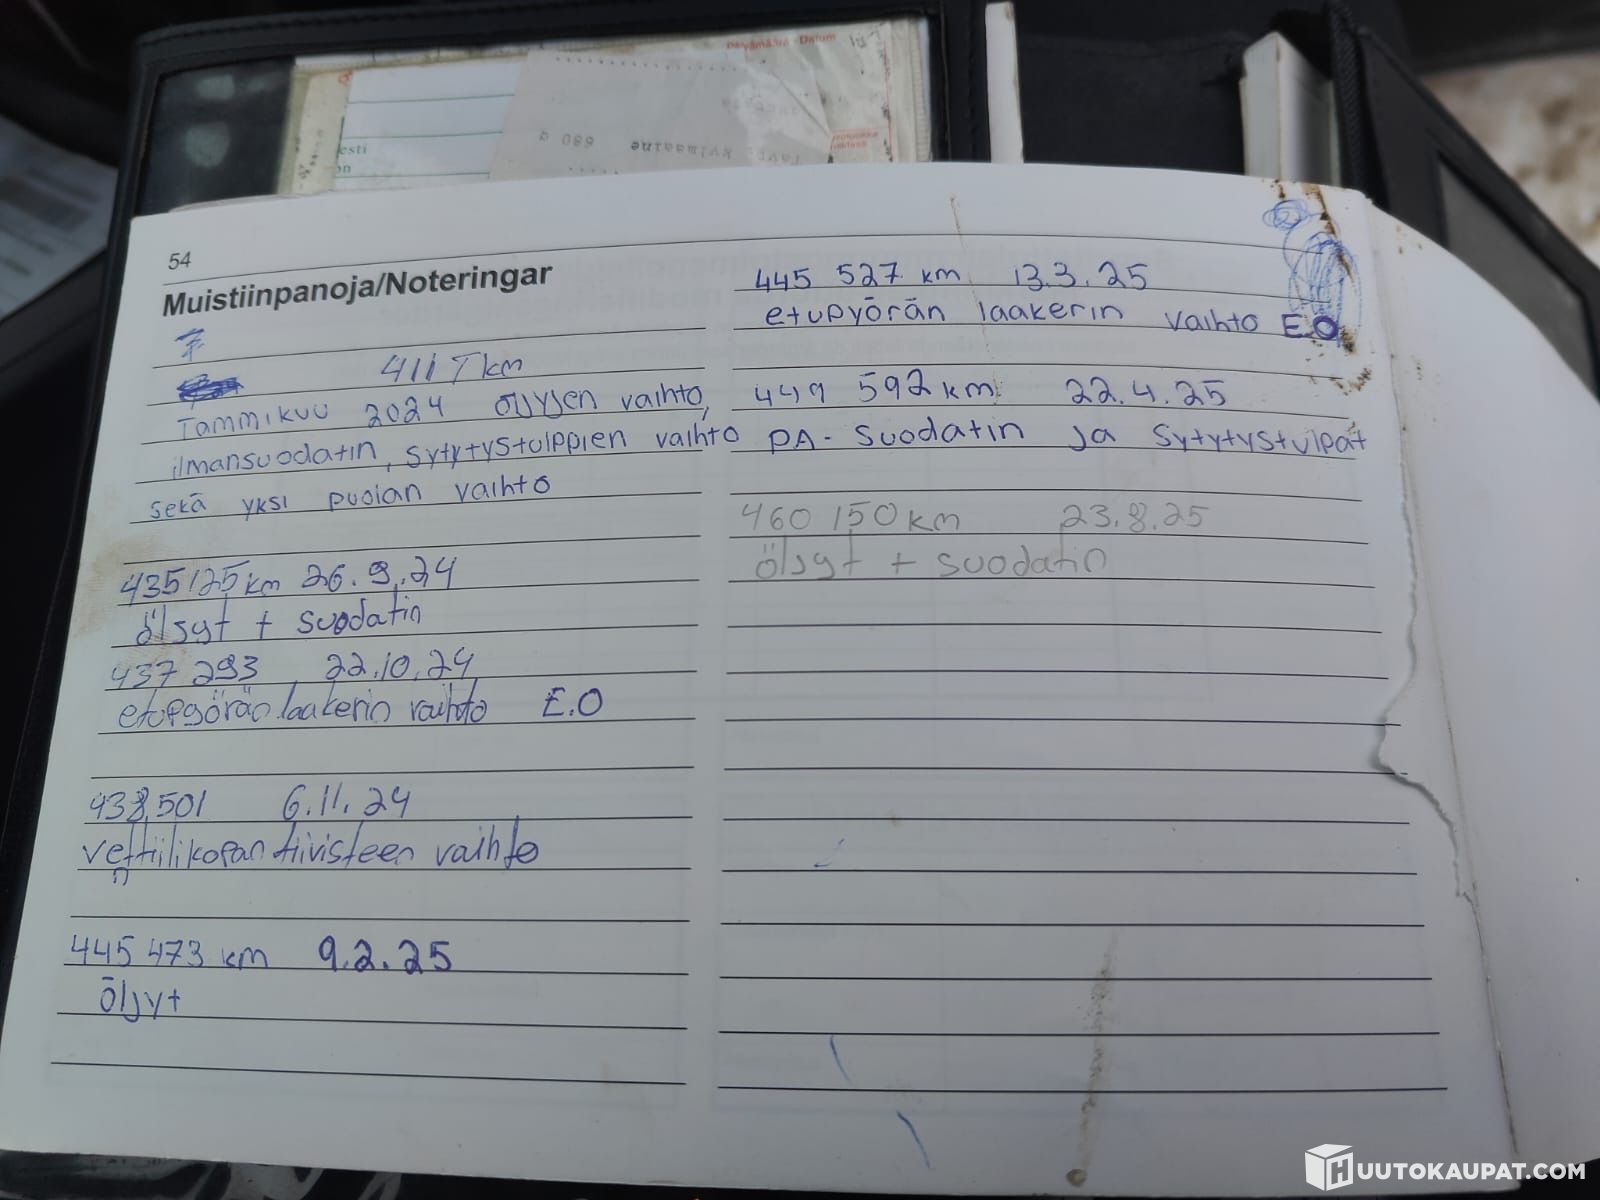 Päivämäärä Datum
680 g
kylmäaine
esti
on
54
Muistiinpanoja/Noteringar
411 T km
Tammikuu 2024 öljyjen vaihto,
ilmansuodatin, sytytystulppien vaihto
sekä yksi puolan vaihto
435125 km 26.9.24
öljyt + suodatin
437 293 22.10.24
etupyörän laakerin vaihto E.O
438,501 6.11.24
venttiilikopan tiivisteen vaihto
445 473 km 9.2.25
öljyt
445 527 km 13.3.25
etupyörän laakerin vaihto E.O
449 592 km 22.4.25
PA-suodatin ja sytytystulpat
460 150 km 23.8.25
öljyt + suodatin
HUUTOKAUPAT.COM